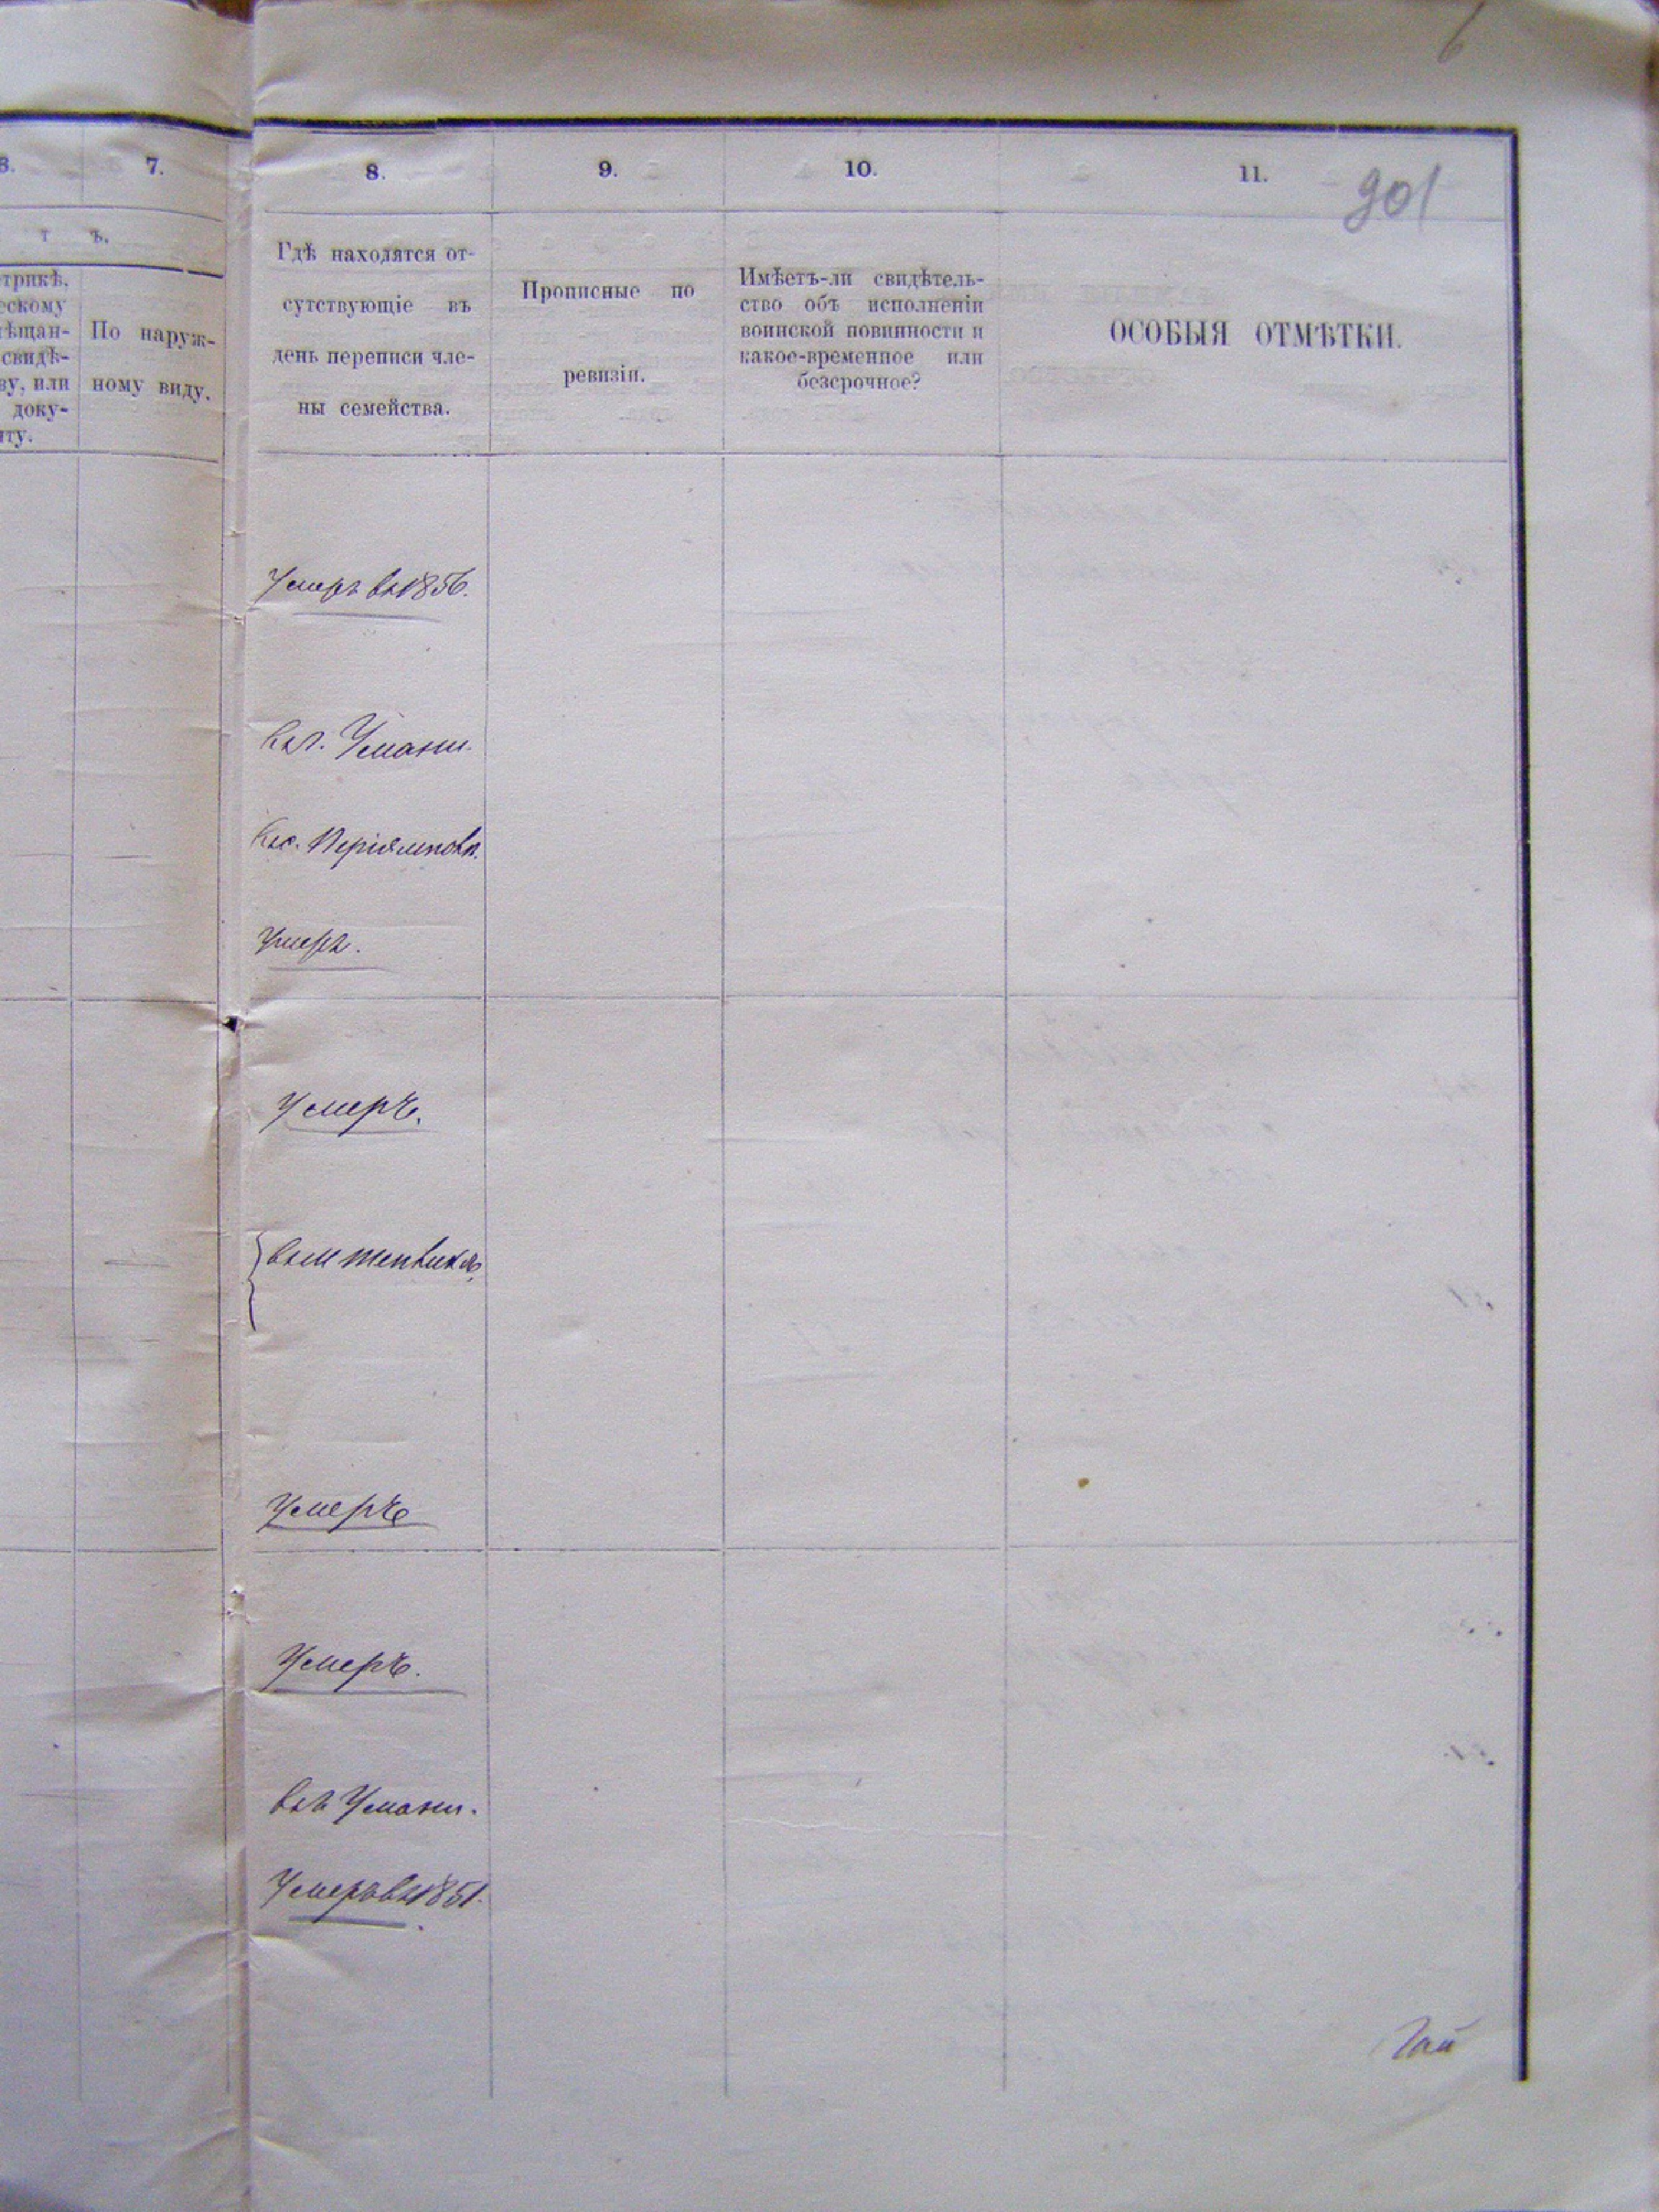 6
6.
7.
8.
9.
10.
11.
901
т ъ.
трикѣ,
ескому
ѣщан-
свидѣ-
ву, или
доку-
нту.
По наруж-
ному виду.
Гдѣ находятся от-
сутствующіе въ
день переписи чле-
ны семейства.
Прописные по
ревизіи.
Имѣетъ-ли свидѣтель-
ство объ исполненіи
воинской повинности и
какое-временное или
безсрочное?
ОСОБЫЯ ОТМѢТКИ.
Умеръ въ 1856.
Въ г. Умани.
Умеръ.
Умеръ.
Умеръ
Умеръ.
Въ г. Умани.
Умеръ въ 1851.